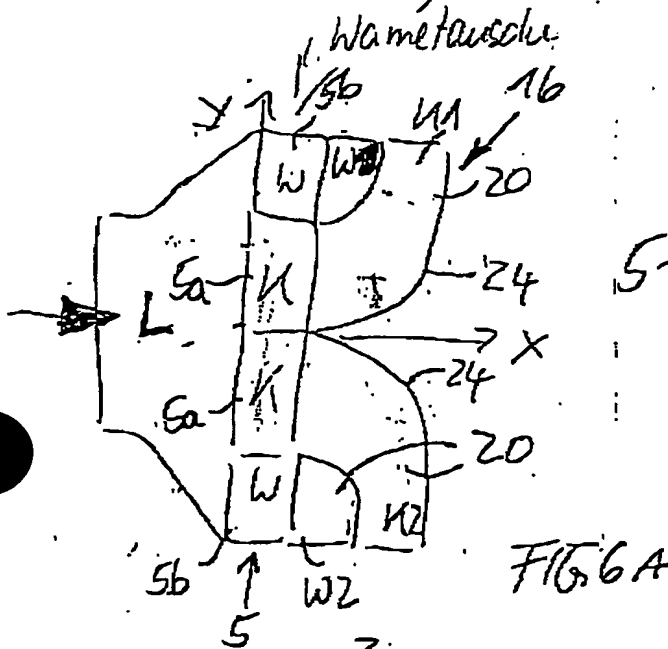 Wametauschu
y 5b K1 16
W W 20
5a K 24
5
L X
K 24
5a
W 20
K2
5b W2 FIG. 6A
5